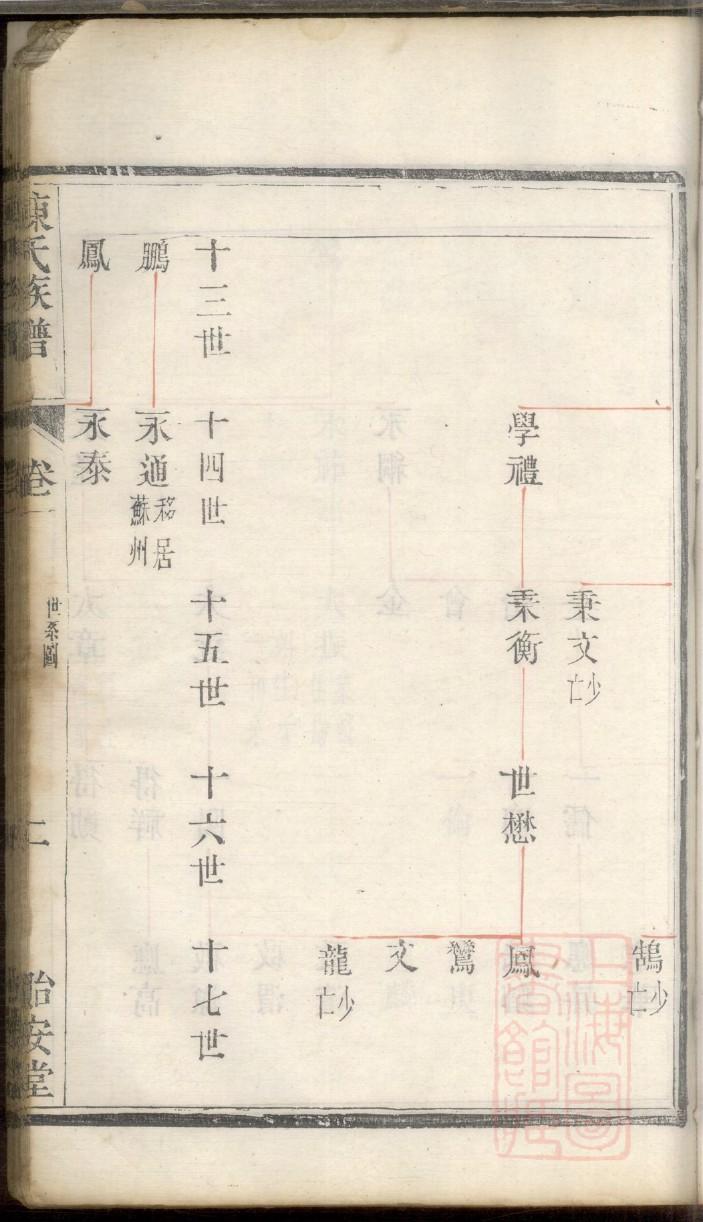 鵠少亡
秉文少亡
學禮
秉衡
世懋
鳳
鸞
文
龍少亡
十三世
十四世
十五世
十六世
十七世
鵬
永通移居蘇州
鳳
永泰
陳氏族譜
卷一
世系圖
二
怡安堂
上海圖書館藏